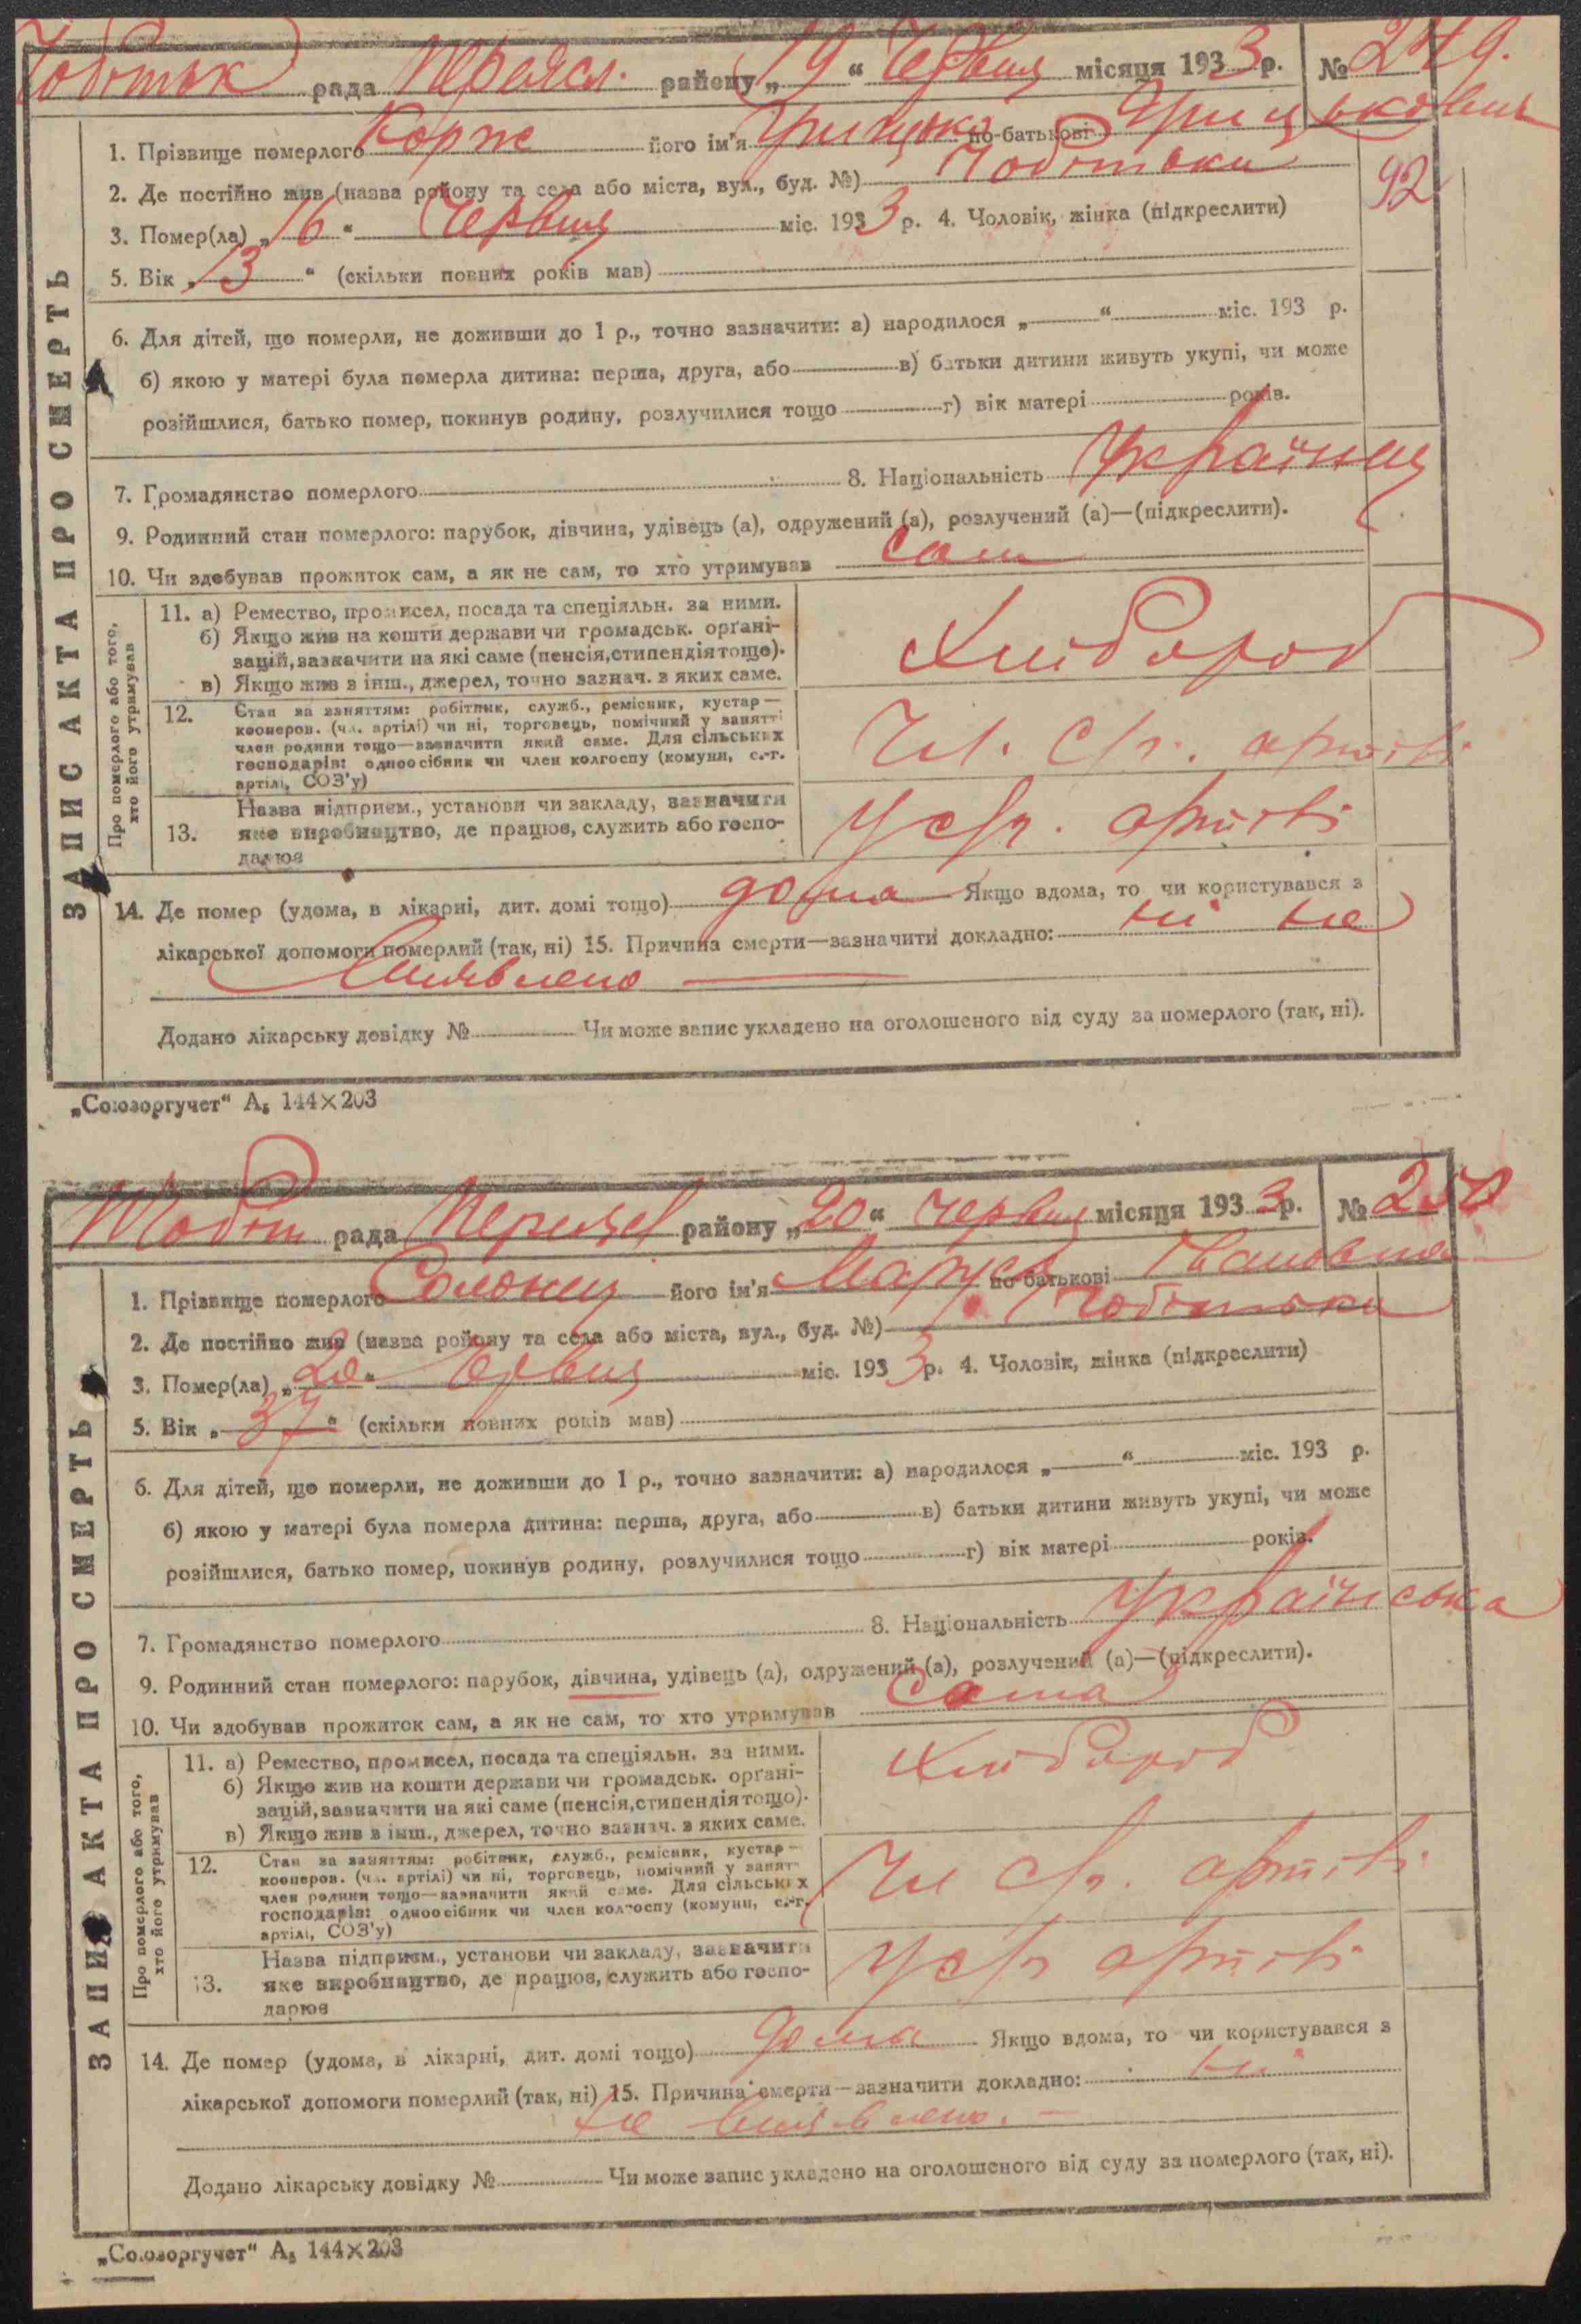 Чобітьк рада Переясл. району „19“ Червня місяця 1933 р. № 249.
ЗАПИС АКТА ПРО СМЕРТЬ
1. Прізвище померлого Корж його ім'я Грицько по-батькові Грицькович
2. Де постійно жив (назва району та села або міста, вул., буд. №) Чобітьки
92
3. Помер(ла) „16“ Червня міс. 1933 р. 4. Чоловік, жінка (підкреслити)
5. Вік „13“ (скільки повних років мав)
6. Для дітей, що померли, не доживши до 1 р., точно зазначити: а) народилося „ “ міс. 193 р.
б) якою у матері була померла дитина: перша, друга, або в) батьки дитини живуть укупі, чи може
розійшлися, батько помер, покинув родину, розлучилися тощо г) вік матері років.
7. Громадянство померлого 8. Національність Українец
9. Родинний стан померлого: парубок, дівчина, удівець (а), одружений (а), розлучений (а)—(підкреслити).
10. Чи здобував прожиток сам, а як не сам, то хто утримував Сам
Про померлого або того, хто його утримував
11. а) Ремество, промисел, посада та спеціяльн. за ними.
б) Якщо жив на кошти держави чи громадськ. орґані-
зацій, зазначити на які саме (пенсія, стипендія тощо).
в) Якщо жив з інш., джерел, точно зазнач. з яких саме.
Хлібороб
12. Стан за заняттям: робітник, служб., ремісник, кустар—
кооперов. (чл. артілі) чи ні, торговець, помічний у занятті
член родини тощо—зазначити який саме. Для сільських
господарів: одноосібник чи член колгоспу (комуни, с.-г.
артілі, СОЗ'у)
Чл. с/г. артілі
13. Назва підприєм., установи чи закладу, зазначити
яке виробництво, де працює, служить або госпо-
дарює
У с/г. артілі
14. Де помер (удома, в лікарні, дит. домі тощо) дома Якщо вдома, то чи користувався з
лікарської допомоги померлий (так, ні) 15. Причина смерти—зазначити докладно: ні не
виявлено
Додано лікарську довідку № Чи може запис укладено на оголошеного від суду за померлого (так, ні).
„Союзоргучет“ А₅ 144×203
Чобіт рада району „20“ червня місяця 1933 р. № 250
ЗАПИС АКТА ПРО СМЕРТЬ
1. Прізвище померлого його ім'я Маруся по-батькові Івановна
2. Де постійно жив (назва району та села або міста, вул., буд. №) Чобітьки
3. Помер(ла) „20“ Червня міс. 1933 р. 4. Чоловік, жінка (підкреслити)
5. Вік „37“ (скільки повних років мав)
6. Для дітей, що померли, не доживши до 1 р., точно зазначити: а) народилося „ “ міс. 193 р.
б) якою у матері була померла дитина: перша, друга, або в) батьки дитини живуть укупі, чи може
розійшлися, батько помер, покинув родину, розлучилися тощо г) вік матері років.
7. Громадянство померлого 8. Національність Українська
9. Родинний стан померлого: парубок, дівчина, удівець (а), одружений (а), розлучений (а)—(підкреслити).
10. Чи здобував прожиток сам, а як не сам, то хто утримував Сама
Про померлого або того, хто його утримував
11. а) Ремество, промисел, посада та спеціяльн. за ними.
б) Якщо жив на кошти держави чи громадськ. орґані-
зацій, зазначити на які саме (пенсія, стипендія тощо).
в) Якщо жив з інш., джерел, точно зазнач. з яких саме.
Хлібороб
12. Стан за заняттям: робітник, служб., ремісник, кустар—
кооперов. (чл. артілі) чи ні, торговець, помічний у занят
член родини тощо—зазначити який саме. Для сільських
господарів: одноосібник чи член колгоспу (комуни, с.-г.
артілі, СОЗ'у)
Чл с/г. артілі
13. Назва підприєм., установи чи закладу, зазначити
яке виробництво, де працює, служить або госпо-
дарює
У с/г артілі
14. Де помер (удома, в лікарні, дит. домі тощо) дома Якщо вдома, то чи користувався з
лікарської допомоги померлий (так, ні) 15. Причина смерти—зазначити докладно: ні
не виявлено.
Додано лікарську довідку № Чи може запис укладено на оголошеного від суду за померлого (так, ні).
„Союзоргучет“ А₅ 144×203